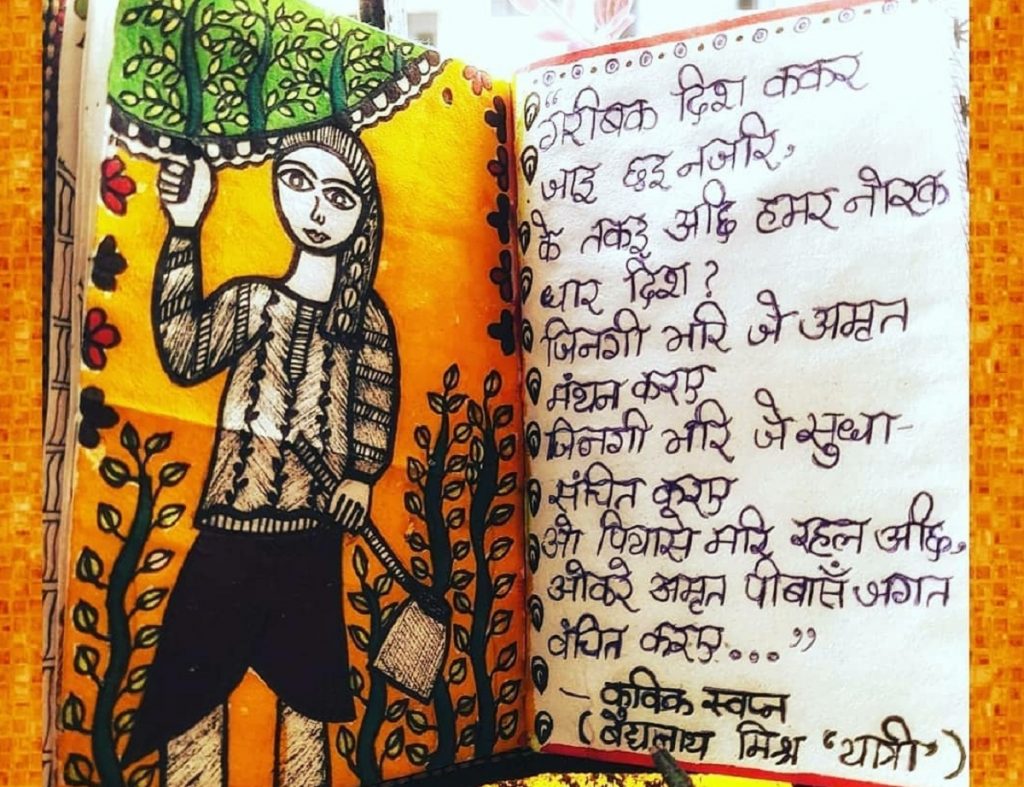 “गरीबक दिश ककर
जाइ छइ नजरि,
के तकइ अछि हमर नोरक
धार दिश?
जिनगी भरि जे अमृत
मंथन करए
जिनगी भरि जे सुधा-
संचित करए
ओ पियासे मरि रहल अछि,
ओकरे अमृत पीबासँ जगत
वंचित करए....”
— कविक स्वप्न
(बैद्यनाथ मिश्र ‘यात्री’)